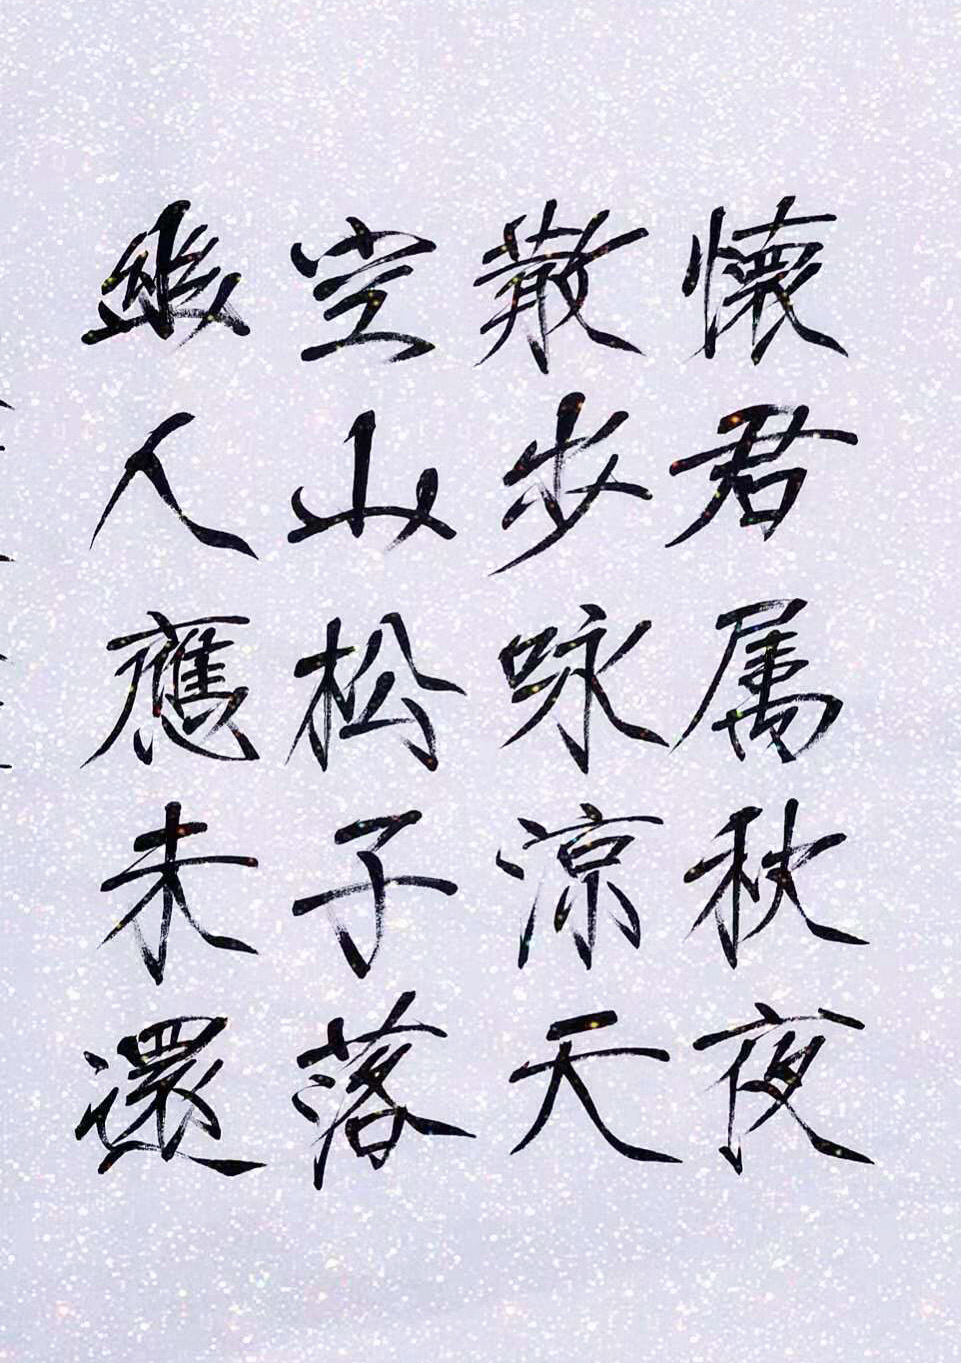 懷君属秋夜
散步咏凉天
空山松子落
幽人應未還